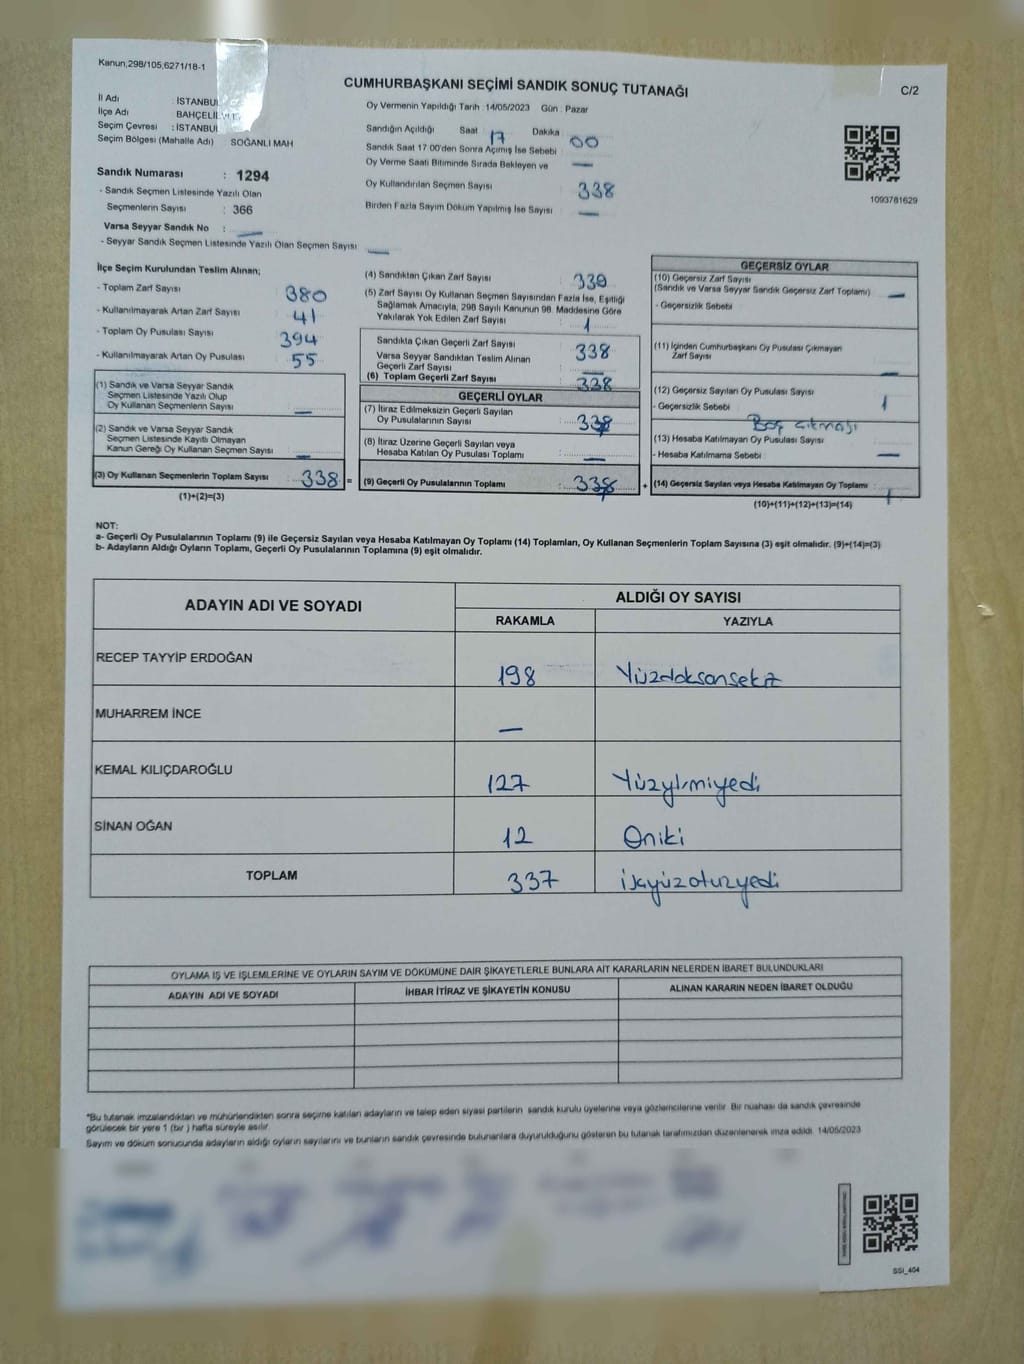 Kanun,298/105,6271/18-1
CUMHURBAŞKANI SEÇİMİ SANDIK SONUÇ TUTANAĞI
C/2
İl Adı : İSTANBUL
İlçe Adı BAHÇELİEV
Seçim Çevresi : İSTANBUL
Seçim Bölgesi (Mahalle Adı) : SOĞANLI MAH
Oy Vermenin Yapıldığı Tarih : 14/05/2023 Gün : Pazar
Sandığın Açıldığı Saat 17 Dakika 00
Sandık Saat 17:00'den Sonra Açılmış İse Sebebi
Oy Verme Saati Bitiminde Sırada Bekleyen ve —
Oy Kullandırılan Seçmen Sayısı 338
Birden Fazla Sayım Döküm Yapılmış İse Sayısı —
1093781629
Sandık Numarası : 1294
- Sandık Seçmen Listesinde Yazılı Olan
Seçmenlerin Sayısı : 366
Varsa Seyyar Sandık No : —
- Seyyar Sandık Seçmen Listesinde Yazılı Olan Seçmen Sayısı —
İlçe Seçim Kurulundan Teslim Alınan;
- Toplam Zarf Sayısı 380
- Kullanılmayarak Artan Zarf Sayısı 41
- Toplam Oy Pusulası Sayısı 394
- Kullanılmayarak Artan Oy Pusulası 55
(1) Sandık ve Varsa Seyyar Sandık
Seçmen Listesinde Yazılı Olup
Oy Kullanan Seçmenlerin Sayısı —
(2) Sandık ve Varsa Seyyar Sandık
Seçmen Listesinde Kayıtlı Olmayan
Kanun Gereği Oy Kullanan Seçmen Sayısı —
(3) Oy Kullanan Seçmenlerin Toplam Sayısı 338 =
(1)+(2)=(3)
(4) Sandıktan Çıkan Zarf Sayısı
(5) Zarf Sayısı Oy Kullanan Seçmen Sayısından Fazla İse, Eşitliği
Sağlamak Amacıyla, 298 Sayılı Kanunun 98. Maddesine Göre
Yakılarak Yok Edilen Zarf Sayısı 1
Sandıkta Çıkan Geçerli Zarf Sayısı 338
Varsa Seyyar Sandıktan Teslim Alınan
Geçerli Zarf Sayısı —
(6) Toplam Geçerli Zarf Sayısı 338
GEÇERLİ OYLAR
(7) İtiraz Edilmeksizin Geçerli Sayılan
Oy Pusulasının Sayısı
(8) İtiraz Üzerine Geçerli Sayılan veya
Hesaba Katılan Oy Pusulası Toplamı —
(9) Geçerli Oy Pusulalarının Toplamı +
GEÇERSİZ OYLAR
(10) Geçersiz Zarf Sayısı
(Sandık ve Varsa Seyyar Sandık Geçersiz Zarf Toplamı) —
- Geçersizlik Sebebi
(11) İçinden Cumhurbaşkanı Oy Pusulası Çıkmayan
Zarf Sayısı —
(12) Geçersiz Sayılan Oy Pusulası Sayısı 1
- Geçersizlik Sebebi Boş çıkması
(13) Hesaba Katılmayan Oy Pusulası Sayısı
- Hesaba Katılmama Sebebi —
(14) Geçersiz Sayılan veya Hesaba Katılmayan Oy Toplamı 1
(10)+(11)+(12)+(13)=(14)
NOT:
a- Geçerli Oy Pusulalarının Toplamı (9) ile Geçersiz Sayılan veya Hesaba Katılmayan Oy Toplamı (14) Toplamları, Oy Kullanan Seçmenlerin Toplam Sayısına (3) eşit olmalıdır. (9)+(14)=(3)
b- Adayların Aldığı Oyların Toplamı, Geçerli Oy Pusulalarının Toplamına (9) eşit olmalıdır.
ADAYIN ADI VE SOYADI ALDIĞI OY SAYISI
RAKAMLA YAZIYLA
RECEP TAYYİP ERDOĞAN 198 Yüzdoksansekiz
MUHARREM İNCE —
KEMAL KILIÇDAROĞLU 127 Yüzyirmiyedi
SİNAN OĞAN 12 Oniki
TOPLAM 337
OYLAMA İŞ VE İŞLEMLERİNE VE OYLARIN SAYIM VE DÖKÜMÜNE DAİR ŞİKAYETLERLE BUNLARA AİT KARARLARIN NELERDEN İBARET BULUNDUKLARI
ADAYIN ADI VE SOYADI İHBAR İTİRAZ VE ŞİKAYETİN KONUSU ALINAN KARARIN NEDEN İBARET OLDUĞU
*Bu tutanak imzalandıktan ve mühürlendikten sonra seçime katılan adayların ve talep eden siyasi partilerin sandık kurulu üyelerine veya gözlemcilerine verilir. Bir nüshası da sandık çevresinde
görülecek bir yere 1 (bir) hafta süreyle asılır.
Sayım ve döküm sonucunda adayların aldığı oyların sayılarını ve bunların sandık çevresinde bulunanlara duyurulduğunu gösteren bu tutanak tarafımızdan düzenlenerek imza edildi. 14/05/2023
SSI_404